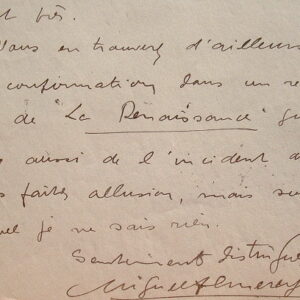 très.
Vous en trouvez d'ailleurs
confirmation dans un
de "La Renaissance"
aussi de l'incident
faites allusion, mais
je ne sais rien.
Sentiments distingués